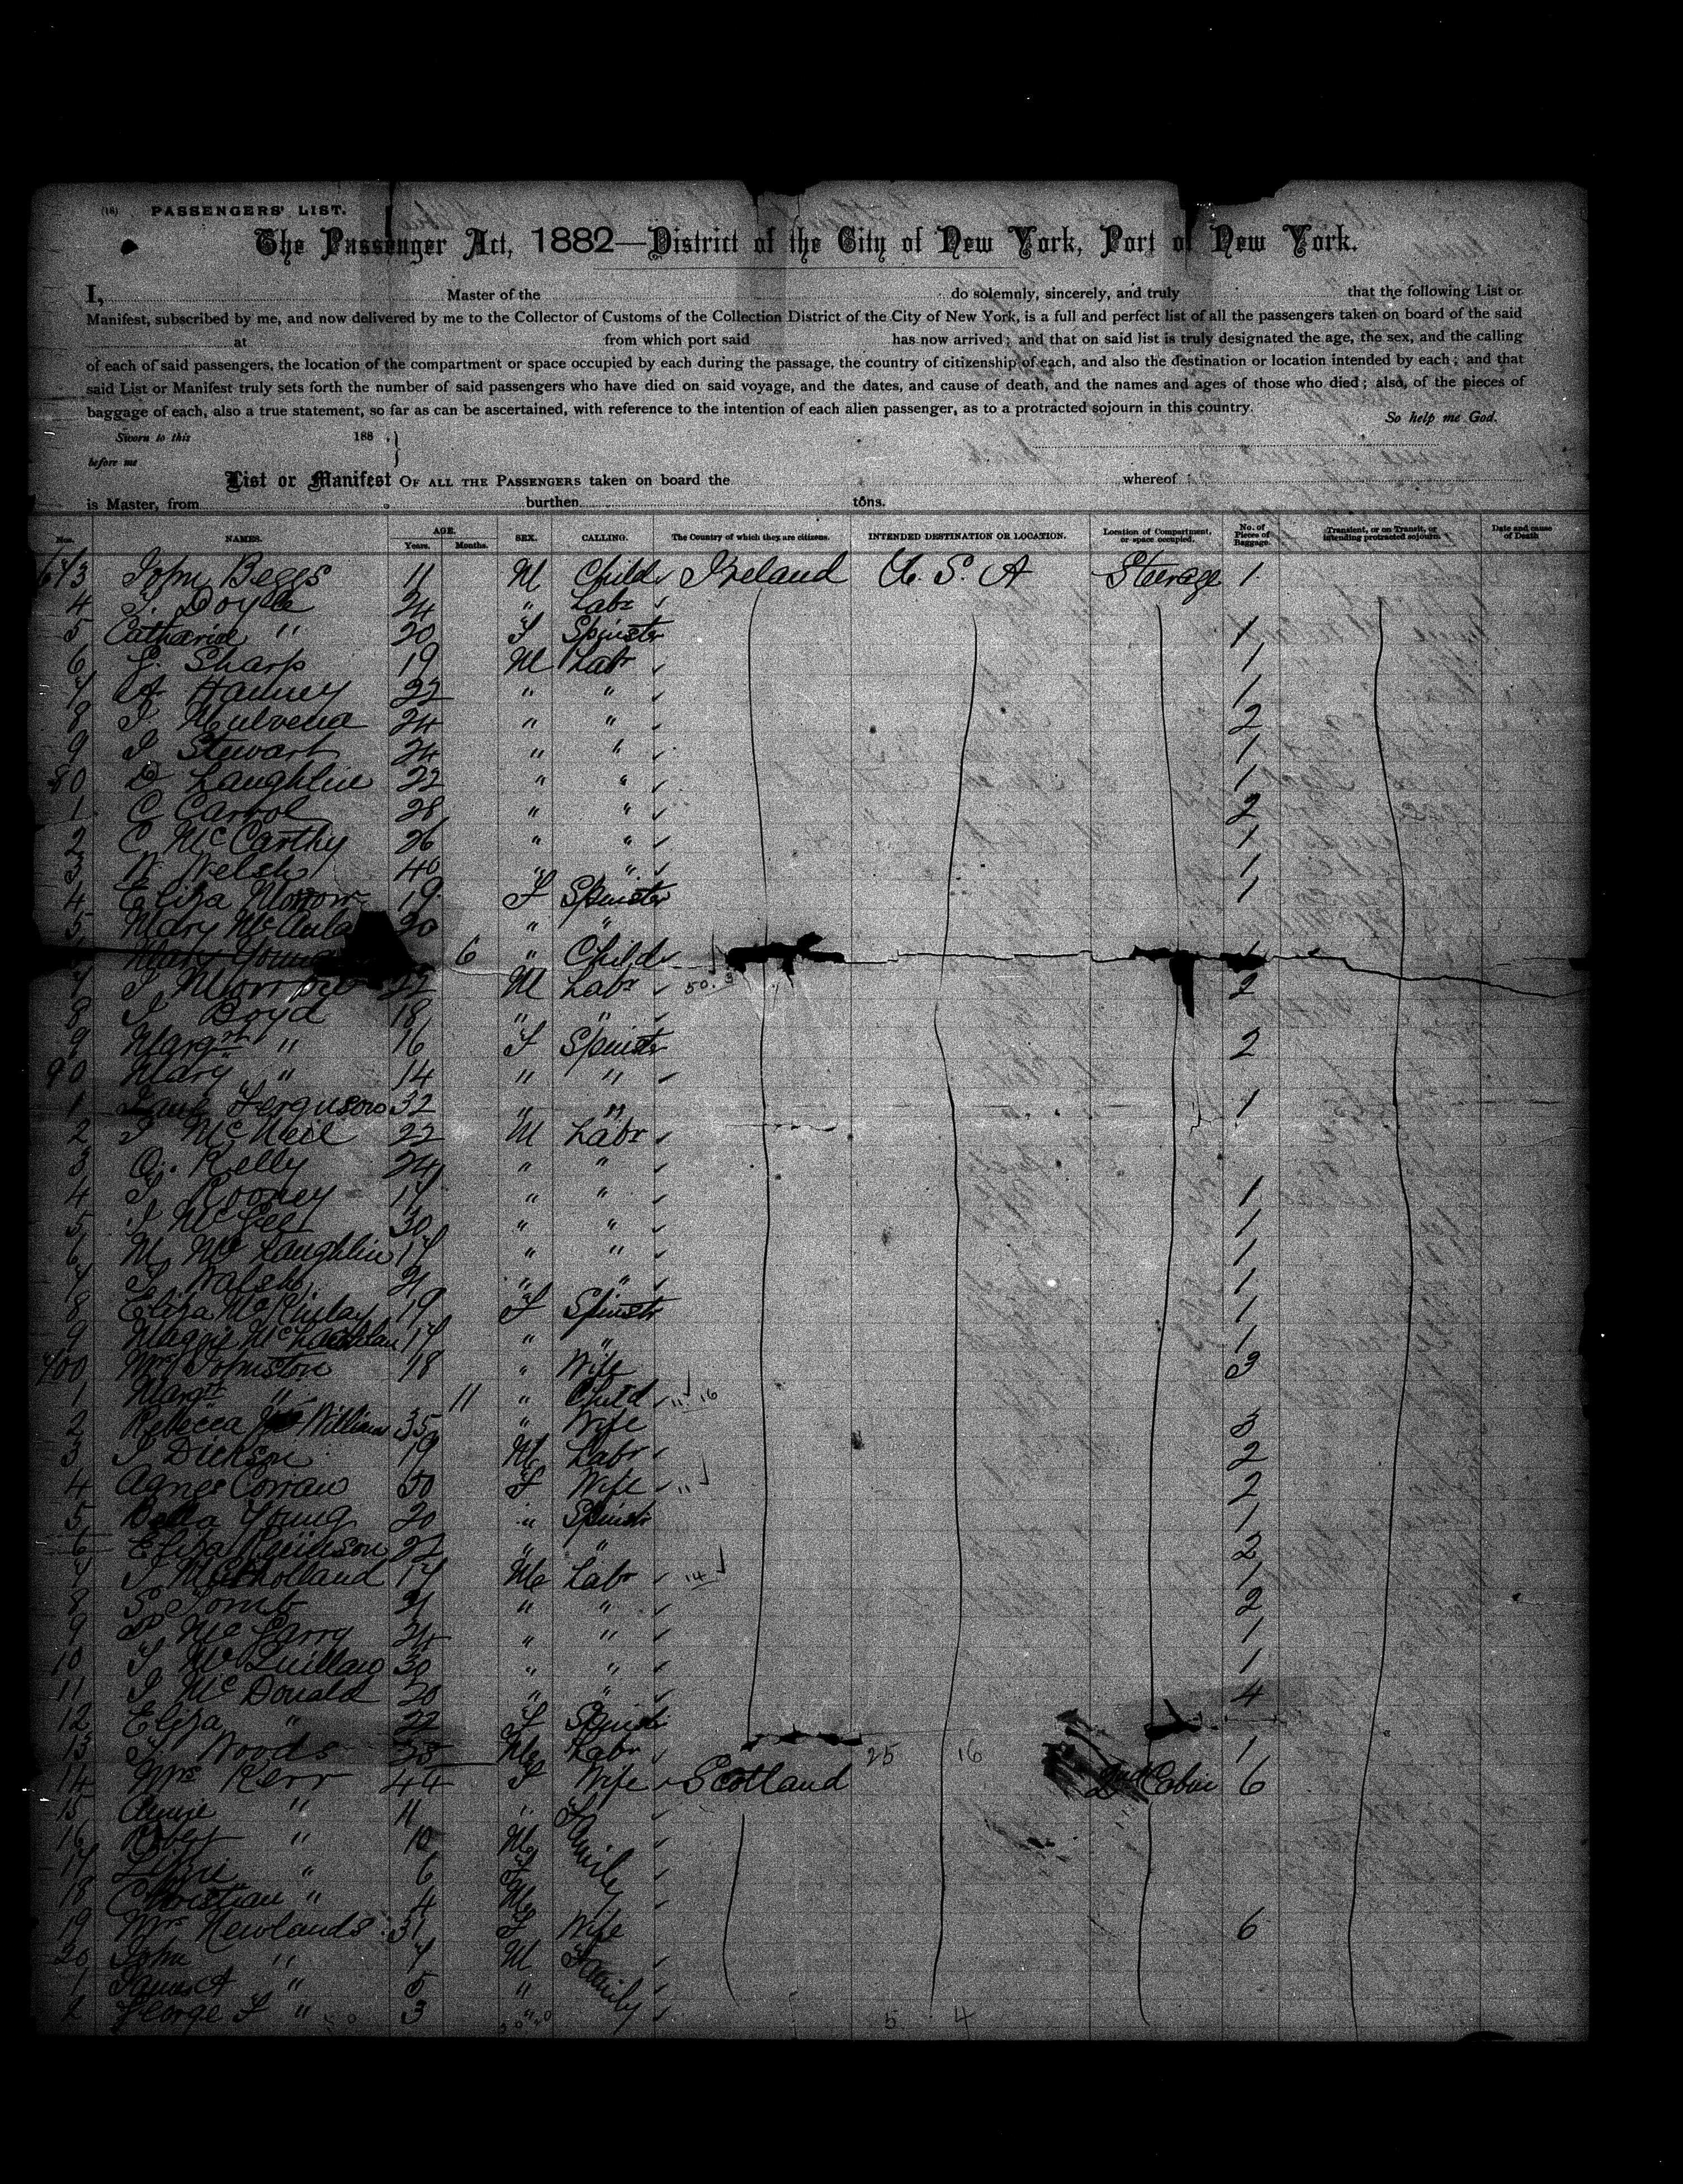 (18) PASSENGERS' LIST.
The Passenger Act, 1882—District of the City of New York, Port of New York.
I, Master of the do solemnly, sincerely, and truly that the following List or
Manifest, subscribed by me, and now delivered by me to the Collector of Customs of the Collection District of the City of New York, is a full and perfect list of all the passengers taken on board of the said
at from which port said has now arrived; and that on said list is truly designated the age, the sex, and the calling
of each of said passengers, the location of the compartment or space occupied by each during the passage, the country of citizenship of each, and also the destination or location intended by each; and that
said List or Manifest truly sets forth the number of said passengers who have died on said voyage, and the dates, and cause of death, and the names and ages of those who died; also, of the pieces of
baggage of each, also a true statement, so far as can be ascertained, with reference to the intention of each alien passenger, as to a protracted sojourn in this country.
So help me God.
Sworn to this 188 .
before me
List or Manifest OF ALL THE PASSENGERS taken on board the whereof
is Master, from burthen tons.
Nos. NAMES. AGE. Years. Months. SEX. CALLING. The Country of which they are citizens. INTENDED DESTINATION OR LOCATION. Location of Compartment, or space occupied. No. of Pieces of Baggage. Transient, or on Transit, or intending protracted sojourn. Date and cause of Death
John Beggs 11 M Child Ireland U. S. A Steerage 1
4 Doyle 24 " Labr
5 Catharine " 20 F Spinster 1
6 Sharp 19 M Labr 1
7 A 22 " " 1
8 Mulvena 24 " " 2
9 Stewart 24 " " 1
80 D Laughlin 22 " " 1
1 C Carrol 28 " " 2
2 C McCarthy 26 " " 1
3 W Welsh 40 " " 1
4 Eliza Morrow 19 F Spinster 1
5 Mary McAula 20 " "
Mary Young 6 " Child
7 M Labr 50. 3 2
8 Boyd 18 " "
9 Margrt " 16 F Spinster 2
90 Mary " 14 " "
1 Jane Ferguson 32 " " 1
2 McNeil 22 M Labr
3 Kelly 24 " "
4 Rooney 17 " " 1
5 McGee 30 " " 1
6 M McLaughlin 17 " " 1
7 Walsh 21 " " 1
8 Eliza McKinlay 19 F Spinstr 1
9 Maggie 17 " " 1
700 Mrs Johnston 18 " Wife 3
1 Margt " 11 " Child " 16
2 Rebecca Williams 35 " Wife 3
3 Dickson 19 M Labr 2
4 Agnes Corran 50 F Wife " 2
5 Bella Young 20 " Spinstr 1
6 Eliza 22 " " 2
7 Mulholland 17 M Labr 14 1
8 S Tomb 21 " " 2
9 P McGarry 24 " " 1
10 McQuillan 30 " " 1
11 McDonald 20 " " 4
12 Eliza " 22 F Spinstr
13 Woods 23 M Labr 25 16 1
14 Mrs Kerr 44 F Wife Scotland 2nd Cabin 6
15 Annie " 11 " Family
16 Robert " 10 M
17 Lizzie " 6 F
18 Christian " 4 M
19 Mrs Newlands 31 F Wife 6
20 John " 7 M Family
1 James A " 5 "
2 George " 3 " 5 4